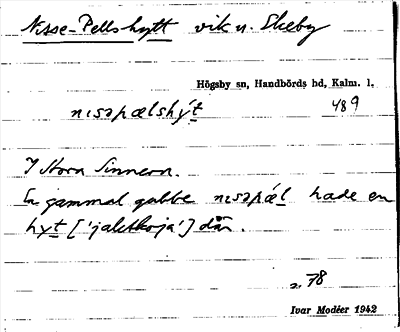 Nisse-Pellshytt vik n. Ekeby
Högsby sn, Handbörds hd, Kalm. l.
nɪsəpælshýt 489
I Stora Sinnern.
En gammal gubbe nɪsəpǽl hade en
hyt ['jaktkoja'] där.
s. 78
Ivar Modéer 1942